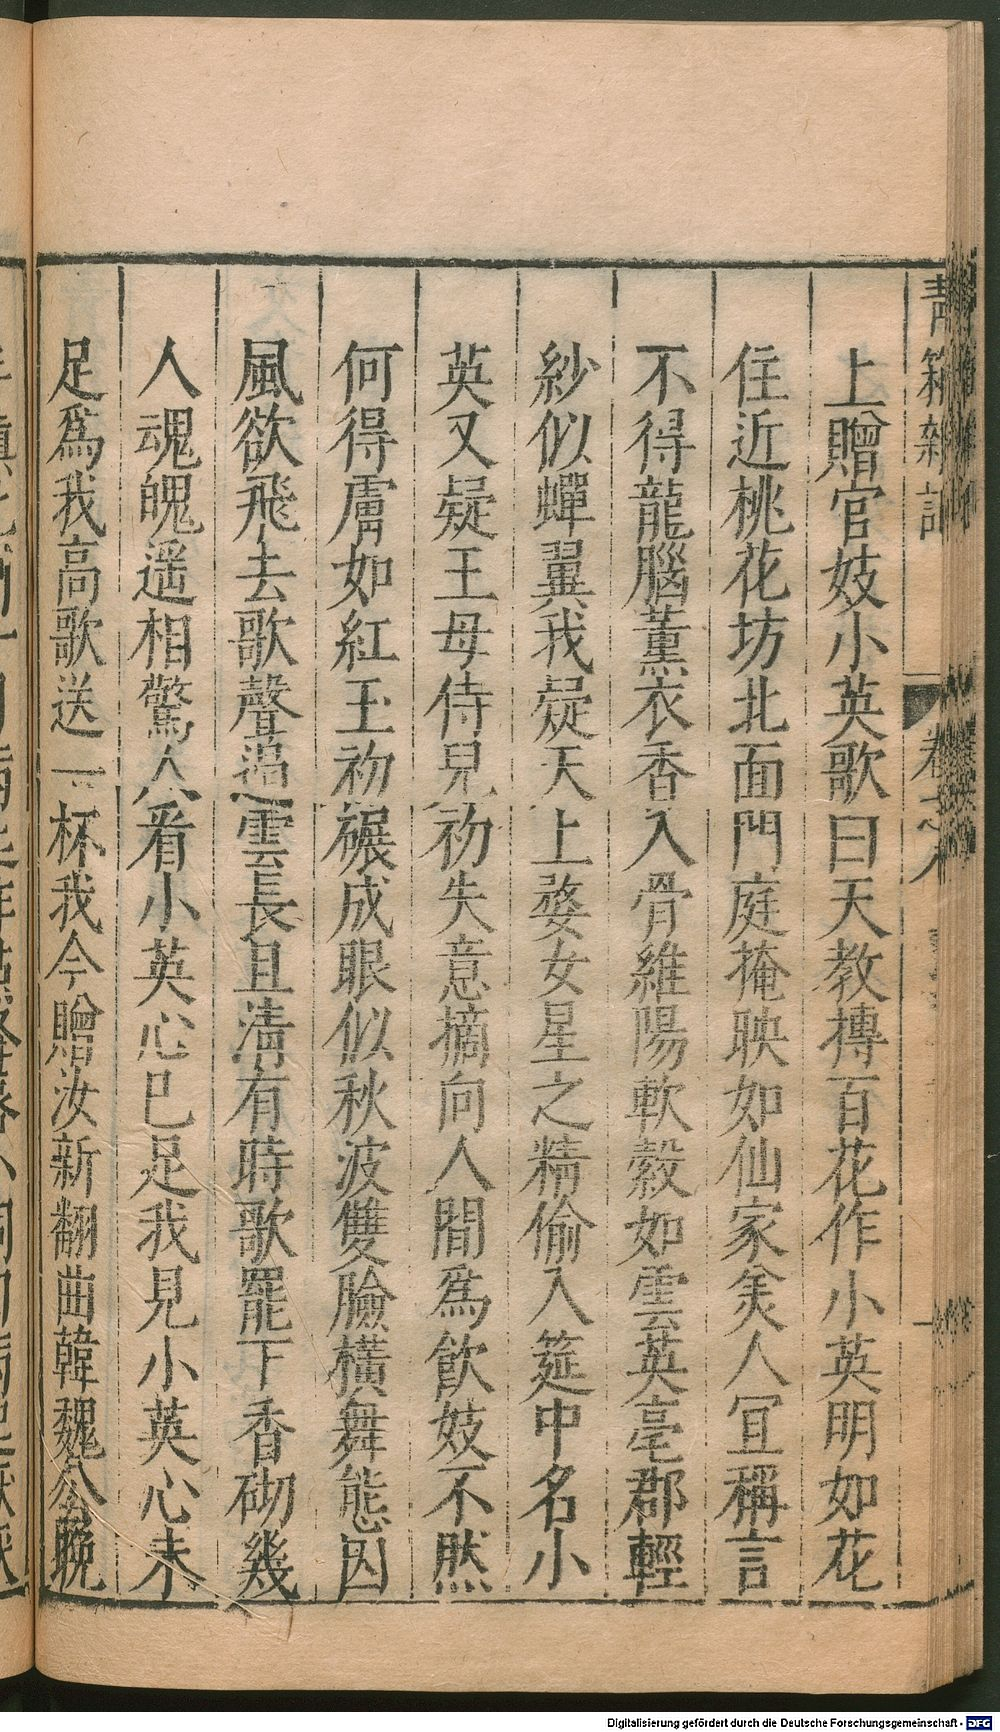 青箱雜記 卷之八
上贈官妓小英歌曰天教摶百花作小英明如花
住近桃花坊北面門庭掩映如仙家美人宜稱言
不得龍腦薰衣香入骨維陽軟縠如雲英亳郡輕
紗似蟬翼我疑天上婺女星之精偷入筵中名小
英又疑王母侍兒初失意摘向人間爲飲妓不然
何得膚如紅玉初碾成眼似秋波雙臉橫舞態因
風欲飛去歌聲遏雲長且淸有時歌罷下香砌幾
人魂魄遥相驚人看小英心已足我見小英心未
足爲我高歌送一杯我今贈汝新翻曲韓魏公晚
Digitalisierung gefördert durch die Deutsche Forschungsgemeinschaft - DFG